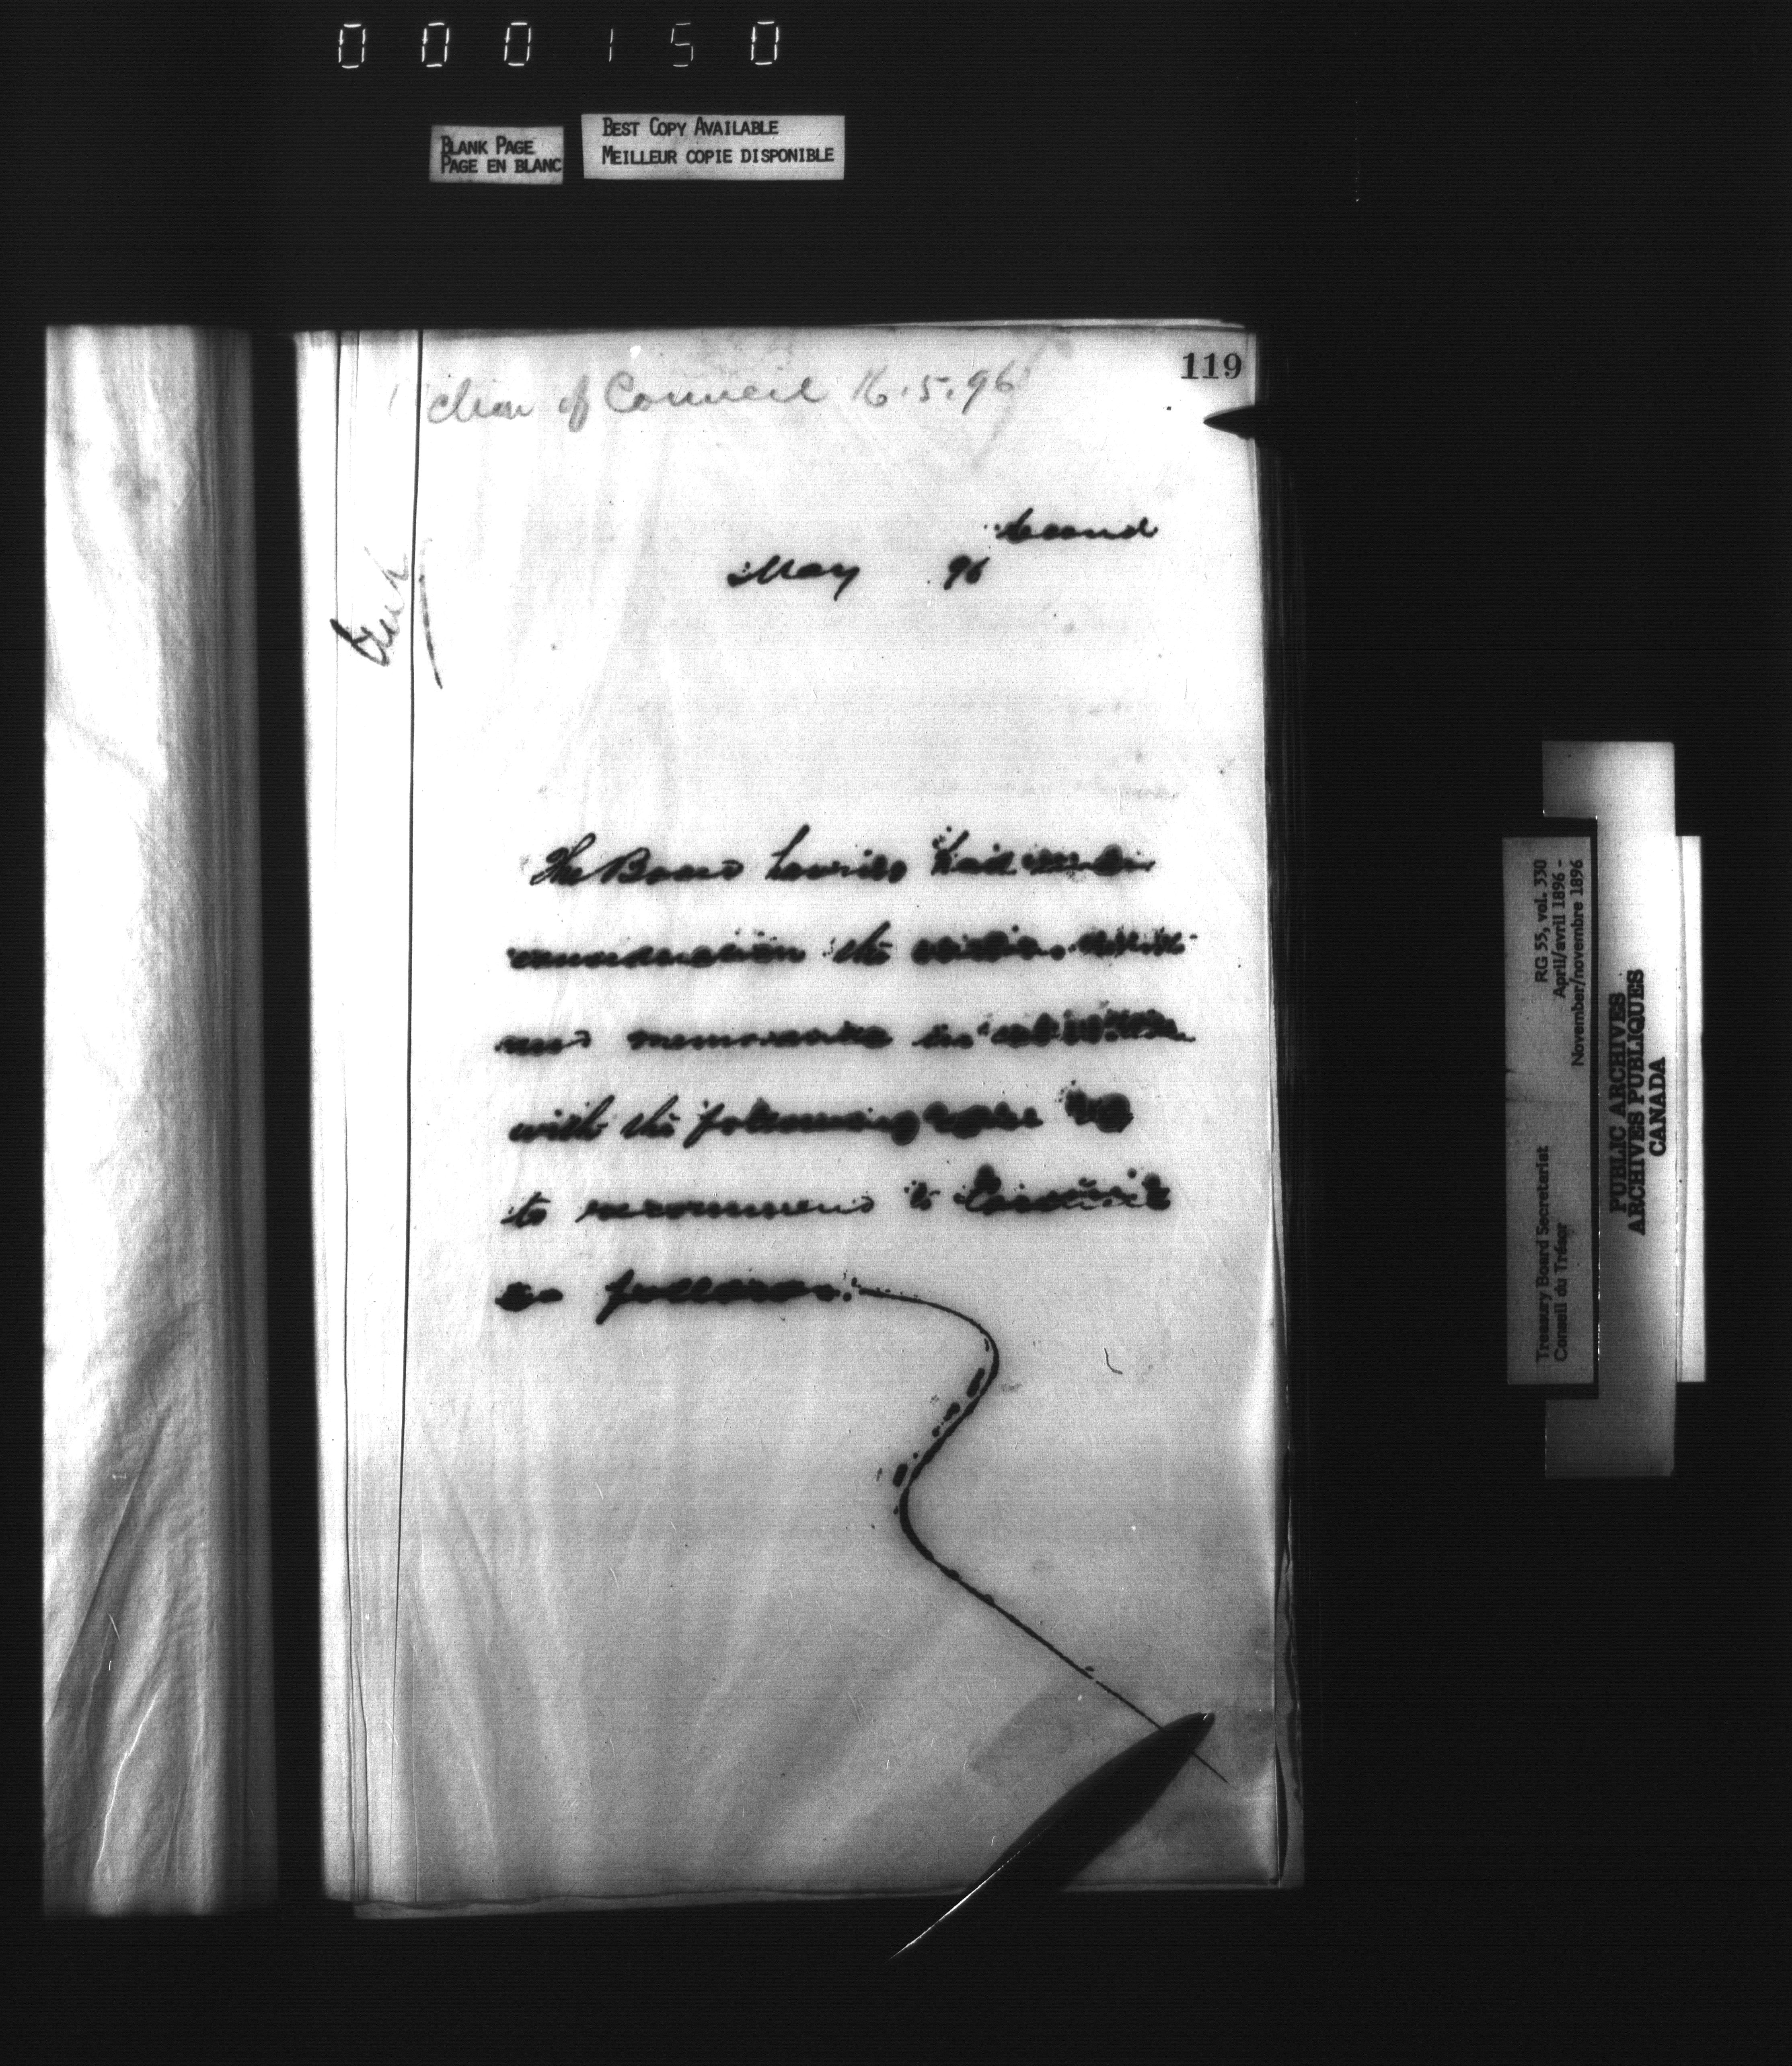 000150
BLANK PAGE
PAGE EN BLANC
BEST COPY AVAILABLE
MEILLEUR COPIE DISPONIBLE
119
of Council 16.5.96
May 96
The Board having had under
consideration the
and memoranda in
with the following
to recommend to Council
as follows:
Treasury Board Secretariat RG 55, vol. 330
Conseil du Trésor April/avril 1896 -
November/novembre 1896
PUBLIC ARCHIVES
ARCHIVES PUBLIQUES
CANADA